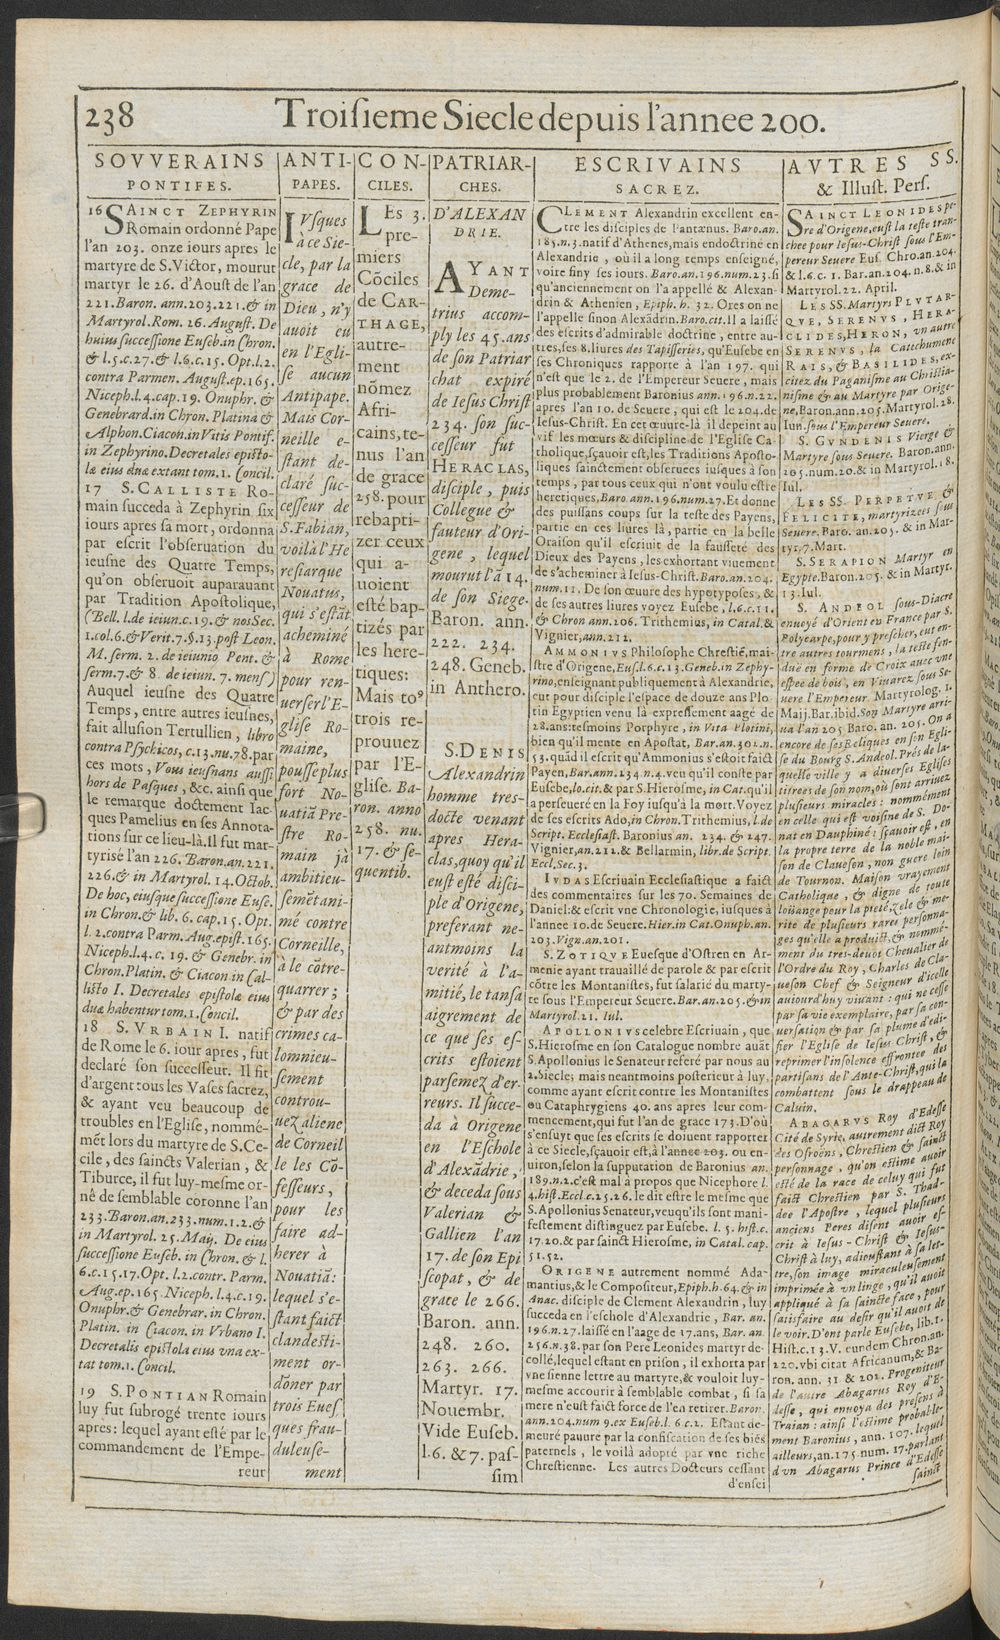 238
Troisieme Siecle depuis l'annee 200.
SOVVERAINS
PONTIFES.
16 SAINCT ZEPHYRIN
Romain ordonné Pape
l'an 203. onze iours apres le
martyre de S. Victor, mourut
martyr le 26. d'Aoust de l'an
221. Baron. ann. 203. 221. & in
Martyrol. Rom. 26. August. De
huius successione Euseb. in Chron.
& l. 5. c. 27. & l. 6. c. 15. Opt. l. 2.
contra Parmen. August. ep. 165.
Niceph. l. 4. cap. 19. Onuphr. &
Genebrard. in Chron. Platina &
Alphon. Ciacon. in Vitis Pontif.
in Zephyrino. Decretales episto-
læ eius duæ extant tom. 1. Concil.
17 S. CALLISTE Ro-
main succeda à Zephyrin six
iours apres sa mort, ordonna
par escrit l'obseruation du
ieusne des Quatre Temps,
qu'on obseruoit auparauant
par Tradition Apostolique,
(Bell. l. de ieiun. c. 19. & nos Sec.
1. col. 6. & Verit. 7. §. 13. post Leon.
M. serm. 2. de ieiunio Pent. &
serm. 7. & 8. de ieiun. 7. mens)
Auquel ieusne des Quatre
Temps, entre autres ieusnes,
fait allusion Tertullien, libro
contra Psychicos, c. 13. nu. 78. par
ces mots, Vous ieusnans aussi
hors de Pasques, &c. ainsi que
le remarque doctement Iac-
ques Pamelius en ses Annota-
tions sur ce lieu-là. Il fut mar-
tyrisé l'an 226. Baron. an. 221.
226. & in Martyrol. 14. Octob.
De hoc, eiusque successione Euse.
in Chron. & lib. 6. cap. 15. Opt.
l. 2. contra Parm. Aug. epist. 165.
Niceph. l. 4. c. 19. & Genebr. in
Chron. Platin. & Ciacon in Cal-
listo I. Decretales epistolæ eius
duæ habentur tom. 1. Concil.
18 S. VRBAIN I. natif
de Rome le 6. iour apres, fut
declaré son successeur. Il fit
d'argent tous les Vases sacrez,
& ayant veu beaucoup de
troubles en l'Eglise, nommé-
mēt lors du martyre de S. Ce-
cile, des saincts Valerian, &
Tiburce, il fut luy-mesme or-
né de semblable coronne l'an
233. Baron. an. 233. num. 1. 2. &
in Martyrol. 25. May. De eius
successione Euseb. in Chron. & l.
6. c. 15. 17. Opt. l. 2. contr. Parm.
Aug. ep. 165. Niceph. l. 4. c. 19.
Onuphr. & Genebrar. in Chron.
Platin. in Ciacon. in Vrbano I.
Decretalis epistola eius vna ex-
tat tom. 1. Concil.
19 S. PONTIAN Romain
luy fut subrogé trente iours
apres: lequel ayant esté par le
commandement de l'Empe-
reur
ANTI-
PAPES.
IVsques
à ce Sie-
cle, par la
grace de
Dieu, n'y
auoit eu
en l'Egli-
se aucun
Antipape.
Mais Cor-
neille e-
stant de-
claré suc-
cesseur de
S. Fabian,
voilà l'He
resiarque
Nouatus,
qui s'estāt
acheminé
à Rome
pour ren-
uerser l'E-
glise Ro-
maine,
pousse plus
fort No-
uatiā Pre-
stre Ro-
main jà
ambitieu-
semēt ani-
mé contre
Corneille,
à le cōtre-
quarrer;
& par des
crimes ca-
lomnieu-
sement
controu-
uez aliene
de Corneil
le les Cō-
fesseurs,
pour les
faire ad-
herer à
Nouatiā:
lequel s'e-
stant faict
clandesti-
ment or-
dōner par
trois Eues
ques frau-
duleuse-
ment
CON-
CILES.
LEs 3.
pre-
miers
Cōciles
de CAR-
THAGE,
autre-
ment
nōmez
Afri-
cains, te-
nus l'an
de grace
258. pour
rebapti-
zer ceux
qui a-
uoient
esté bap-
tizés par
les here-
tiques:
Mais to⁹
trois re-
prouuez
par l'E-
glise. Ba-
ron. anno
258. nu.
17. & se-
quentib.
PATRIAR-
CHES.
D'ALEXAN
DRIE.
AYANT
Deme-
trius accom-
ply les 45. ans
de son Patriar
chat expiré
de Iesus Christ
234. son suc-
cesseur fut
HERACLAS,
disciple, puis
Collegue &
fauteur d'Ori-
gene, lequel
mourut l'ā 14.
de son Siege.
Baron. ann.
222. 234.
248. Geneb.
in Anthero.
S. DENIS
Alexandrin
homme tres-
docte venant
apres Hera-
clas, quoy qu'il
eust esté disci-
ple d'Origene,
preferant ne-
antmoins la
verité à l'a-
mitié, le tansa
aigrement de
ce que ses es-
crits estoient
parsemez d'er-
reurs. Il succe-
da à Origene
en l'Eschole
d'Alexādrie,
& deceda sous
Valerian &
Gallien l'an
17. de son Epi
scopat, & de
grace le 266.
Baron. ann.
248. 260.
263. 266.
Martyr. 17.
Nouembr.
Vide Euseb.
l. 6. & 7. pas-
sim
ESCRIVAINS
SACREZ.
CLEMENT Alexandrin excellent en-
tre les disciples de Pantænus. Baro. an.
185. n. 3. natif d'Athenes, mais endoctriné en
Alexandrie, où il a long temps enseigné,
voire finy ses iours. Baro. an. 196. num. 23. si
qu'anciennement on l'a appellé & Alexan-
drin & Athenien, Epiph. h. 32. Ores on ne
l'appelle sinon Alexādrin. Baro. cit. Il a laissé
des escrits d'admirable doctrine, entre au-
tres, ses 8. liures des Tapisseries, qu'Eusebe en
ses Chroniques rapporte à l'an 197. qui
n'est que le 2. de l'Empereur Seuere, mais
plus probablement Baronius ann. 196. n. 22.
apres l'an 10. de Seuere, qui est le 204. de
Iesus-Christ. En cet œuure-là il depeint au
vif les mœurs & discipline de l'Eglise Ca-
tholique, sçauoir est, les Traditions Aposto-
liques sainctement obseruees iusques à son
temps, par tous ceux qui n'ont voulu estre
heretiques, Baro. ann. 196. num. 27. Et donne
des puissans coups sur la teste des Payens,
partie en ces liures là, partie en la belle
Oraison qu'il escriuit de la fausseté des
Dieux des Payens, les exhortant viuement
de s'acheminer à Iesus-Christ. Baro. an. 204.
num. 11. De son œuure des hypotyposes, &
de ses autres liures voyez Eusebe, l. 6. c. 11.
& Chron ann. 206. Trithemius, in Catal. &
Vignier, ann. 212.
AMMONIVS Philosophe Chrestiē, mai-
stre d'Origene, Eus. l. 6. c. 13. Geneb. in Zephy-
rino, enseignant publiquement à Alexandrie,
eut pour disciple l'espace de douze ans Plo-
tin Egyptien venu là expressement aagé de
28. ans: tesmoins Porphyre, in Vita Plotini,
bien qu'il mente en Apostat, Bar. an. 301. n.
53. quād il escrit qu'Ammonius s'estoit faict
Payen, Bar. ann. 234. n. 4. veu qu'il conste par
Eusebe, lo. cit. & par S. Hierosme, in Cat. qu'il
a perseueré en la Foy iusqu'à la mort. Voyez
de ses escrits Ado, in Chron. Trithemius, l. de
Script. Ecclesiast. Baronius an. 234. & 247.
Vignier, an. 212. & Bellarmin, libr. de Script.
Eccl. Sec. 3.
IVDAS Escriuain Ecclesiastique a faict
des commentaires sur les 70. Semaines de
Daniel: & escrit vne Chronologie, iusques à
l'annee 10. de Seuere. Hier. in Cat. Onuph. an.
203. Vign. an. 201.
S. ZOTIQVE Euesque d'Ostren en Ar-
menie ayant trauaillé de parole & par escrit
cōtre les Montanistes, fut salarié du marty-
re sous l'Empereur Seuere. Bar. an. 205. & in
Martyrol. 21. Iul.
APOLLONIVS celebre Escriuain, que
S. Hierosme en son Catalogue nombre auāt
S. Apollonius le Senateur referé par nous au
2. Siecle; mais neantmoins posterieur à luy,
comme ayant escrit contre les Montanistes
ou Cataphrygiens 40. ans apres leur com-
mencement, qui fut l'an de grace 173. D'où
s'ensuyt que ses escrits se doiuent rapporter
à ce Siecle, sçauoir est, à l'annee 203. ou en-
uiron, selon la supputation de Baronius an.
189. n. 2. c'est mal à propos que Nicephore l.
4. hist. Eccl. c. 25. 26. le dit estre le mesme que
S. Apollonius Senateur, veu qu'ils sont mani-
festement distinguez par Eusebe. l. 5. hist. c.
17. 20. & par sainct Hierosme, in Catal. cap.
51. 52.
ORIGENE autrement nommé Ada-
mantius, & le Compositeur, Epiph. h. 64. & in
Anac. disciple de Clement Alexandrin, luy
succeda en l'eschole d'Alexandrie, Bar. an.
196. n. 27. laissé en l'aage de 17. ans, Bar. an.
256. n. 38. par son Pere Leonides martyr de-
collé, lequel estant en prison, il exhorta par
vne sienne lettre au martyre, & vouloit luy-
mesme accourir à semblable combat, si sa
mere n'eust faict force de l'en retirer. Baron.
ann. 204. num 9. ex Euseb. l. 6. c. 2. Estant de-
meuré pauure par la confiscation de ses biés
paternels, le voilà adopté par vne riche
Chrestienne. Les autres Docteurs cessant
d'ensei
AVTRES SS.
& Illust. Pers.
SAINCT LEONIDES pe-
re d'Origene, eust la teste tran-
chee pour Iesus-Christ sous l'Em-
pereur Seuere Eus. Chro. an. 204.
& l. 6. c. 1. Bar. an. 204. n. 8. & in
Martyrol. 22. April.
LES SS. Martyrs PLVTAR-
QVE, SERENVS, HERA-
CLIDES, HERON, vn autre
SERENVS, la Catechumene
RAIS, & BASILIDES, ex-
citez du Paganisme au Christia-
nisme & au Martyre par Orige-
ne, Baron. ann. 205. Martyrol. 28.
Iun. sous l'Empereur Seuere.
S. GVNDENIS Vierge &
Martyre sous Seuere. Baron. ann.
205. num. 20. & in Martyrol. 18.
Iul.
LES SS. PERPETVE &
FELICITE, martyrizees sous
Seuere. Baro. an. 205. & in Mar-
tyr. 7. Mart.
S. SERAPION Martyr en
Egypte. Baron. 205. & in Martyr.
13. Iul.
S. ANDEOL sous-Diacre
enuoyé d'Orient en France par S.
Polycarpe, pour y prescher, eut en-
tre autres tourmens, la teste fen-
duë en forme de Croix auec vne
espee de bois, en Viuarez sous Se-
uere l'Empereur. Martyrolog. 1.
Maij. Bar. ibid. Son Martyre arri-
ua l'an 205 Baro. an. 205. On a
encore de ses Reliques en son Egli-
se du Bourg S. Andeol. Prés de la-
quelle ville y a diuerses Eglises
titrees de son nom, où sont arriuez
plusieurs miracles: nommément
en celle qui est voisine de S. Do-
nat en Dauphiné: sçauoir est, en
la propre terre de la noble mai-
son de Claueson, non guere loin
de Tournon. Maison vrayement
Catholique, & digne de toute
loüange pour la pieté, zele & me-
rite de plusieurs rares personna-
ges qu'elle a produict, & nommé-
ment du tres-deuot Cheualier de
l'Ordre du Roy, Charles de Cla-
ueson Chef & Seigneur d'icelle
aujourd'huy viuant: qui ne cesse
par sa vie exemplaire, par sa con-
uersation & par sa plume d'edi-
fier l'Eglise de Iesus Christ, &
reprimer l'insolence effrontee des
partisans de l'Ante-Christ, qui la
combattent sous le drappeau de
Caluin.
ABAGARVS Roy d'Edesse
Cité de Syrie, autrement dict Roy
des Osroëns, Chrestien & sainct
personnage, qu'on estime auoir
esté de la race de celuy qui fut
faict Chrestien par S. Thad-
dee l'Apostre, lequel plusieurs
anciens Peres disent auoir es-
crit à Iesus-Christ & Iesus-
Christ à luy, adioustant à sa let-
tre, son image miraculeusement
imprimée à vn linge, qu'il auoit
appliqué à sa saincte face, pour
satisfaire au desir qu'il auoit de
le voir. D'ont parle Eusebe, lib. 1.
Hist. c. 13. V. eundem Chron. an.
220. vbi citat Africanum, & Ba-
ron. ann. 31 & 202. Progeniteur
de l'autre Abagarus Roy d'E-
desse, qui enuoya des presens à
Traian: ainsi l'estime probable-
ment Baronius, ann. 107. lequel
ailleurs, an. 175. num. 17. parlant
d'vn Abagarus Prince d'Edesse
sainct